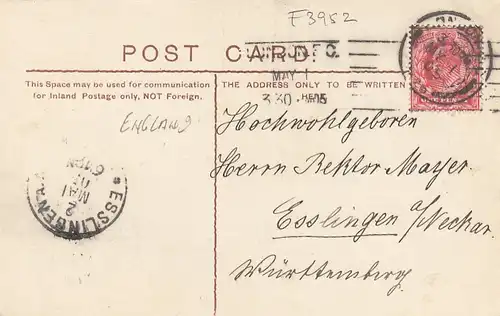 F3952
POST CARD.
MAY 1
3.30
This Space may be used for communication
for Inland Postage only, NOT Foreign.
THE ADDRESS ONLY TO BE WRITTEN
ENGLAND
Hochwohlgeboren
Herrn Rektor Mayer.
Esslingen a/Neckar.
Württemberg
ESSLINGEN
2
MAI